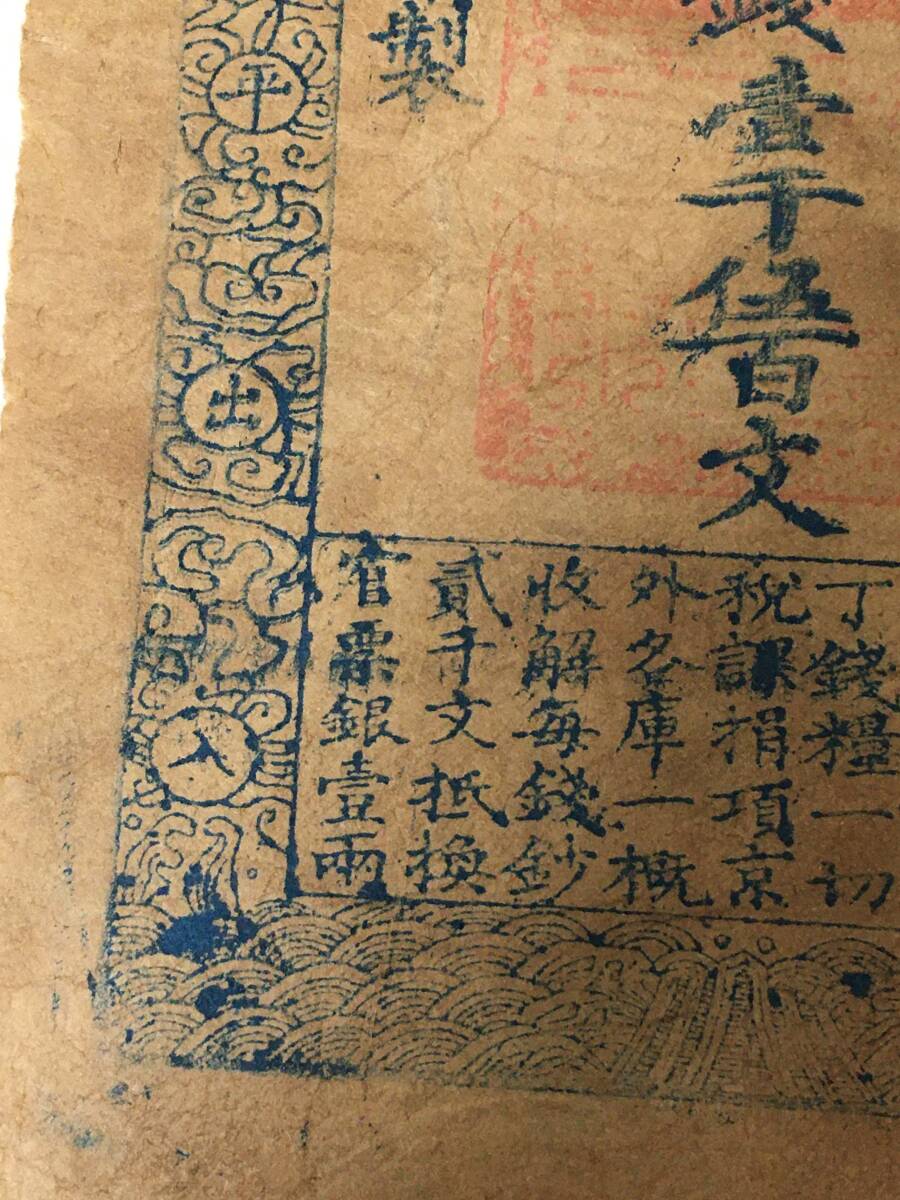 錢壹千伍百文
製
丁錢糧一切
稅課捐項京
外各庫一概
收解每錢鈔
貳千文抵換
官票銀壹兩
平出入